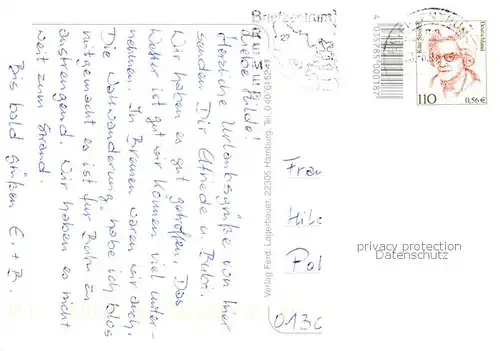 Liebe Hilde!
Herzliche Urlaubsgrüße von hier
senden Dir Elfriede u. Bubi.
Wir haben es gut getroffen. Das
Wetter ist gut wir können viel unter-
nehmen. In Bremen waren wir auch.
Die "Wattwanderung" habe ich blos
mitgemacht es ist für Bubi zu
anstrengend. Wir haben es nicht
weit zum Strand.
Bis bald grüßen E. + B.
Verlag Ferd. Lagerbauer, 22205 Hamburg, Tel.
Briefzentrum
Deutschland
110
0,56 €
Frau
Hil
Pol
privacy protection
Datenschutz